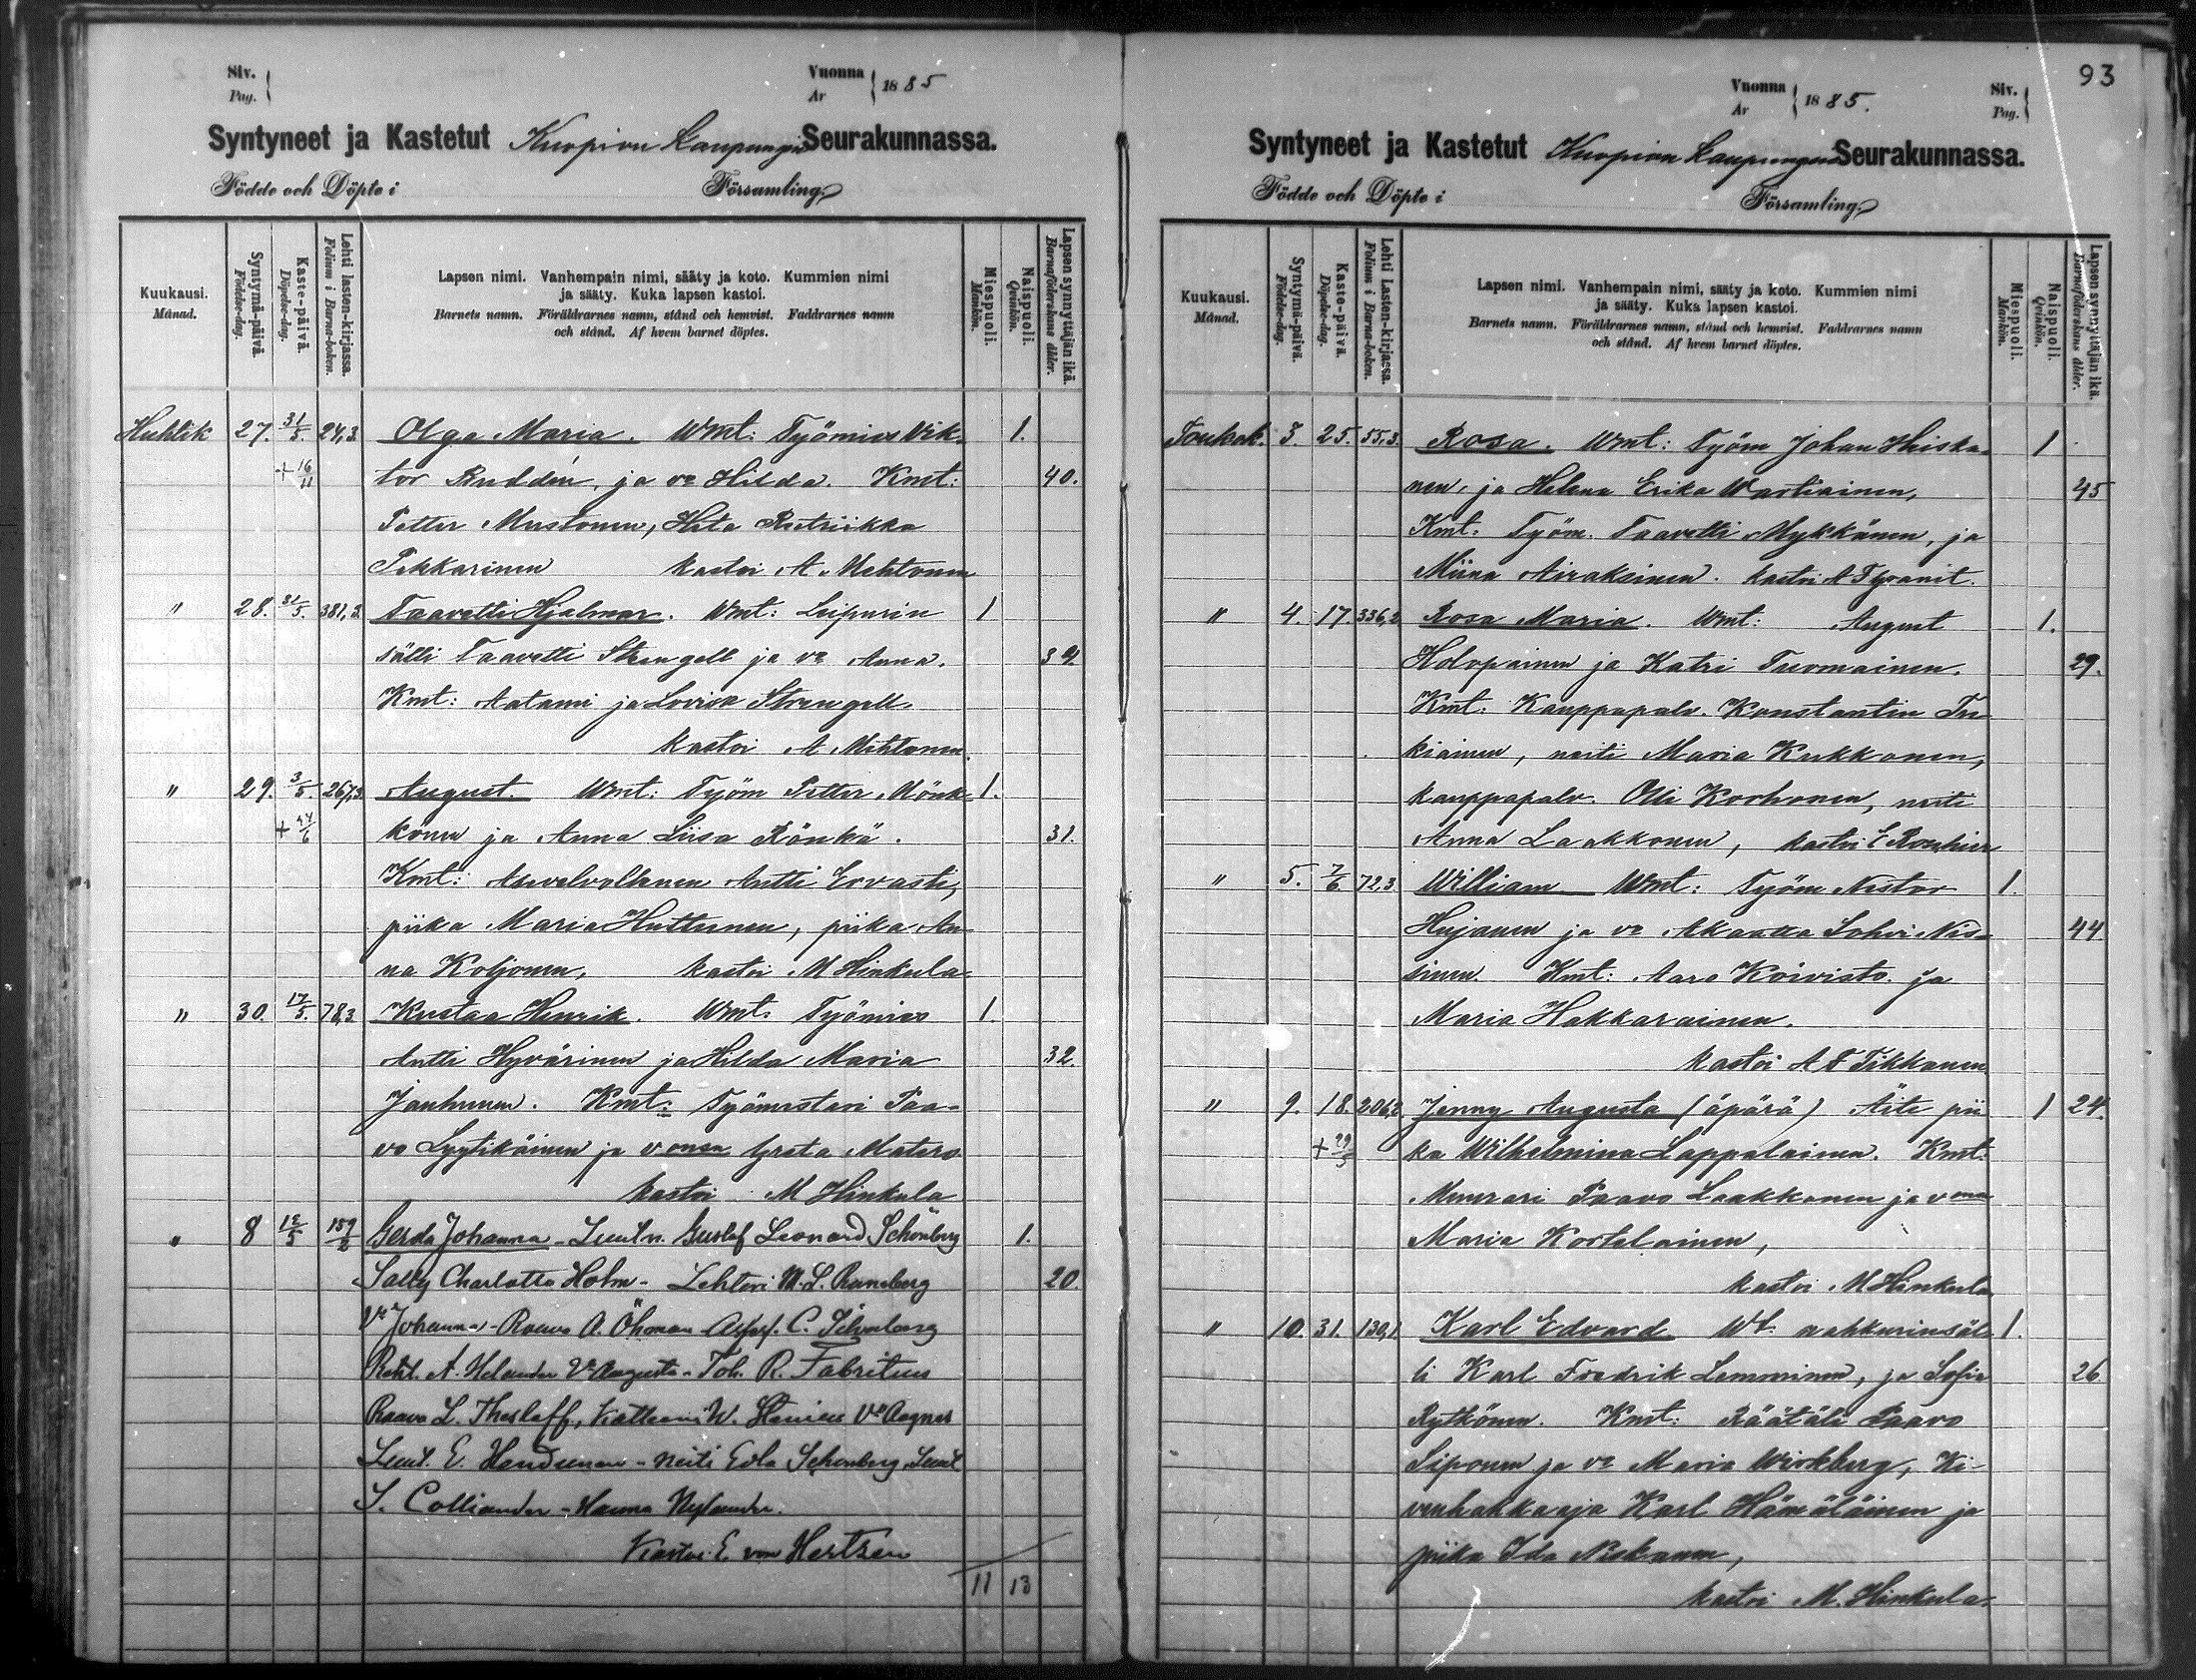 Siv.
Pag.
Vuonna
Ar
1885
Syntyneet ja Kastetut Kuopion Kaupungin Seurakunnassa.
Födde och Döpte i Församling.
Kuukausi.
Månad.
Syntymä-päivä.
Födelse-dag.
Kaste-päivä.
Döpelse-dag.
Lehti lasten-kirjassa.
Folium i Barna-boken.
Lapsen nimi. Vanhempain nimi, sääty ja koto. Kummien nimi
ja sääty. Kuka lapsen kastoi.
Barnets namn. Föräldrarnes namn, stånd och hemvist. Faddrarnes namn
och stånd. Af hvem barnet döptes.
Miespuoli.
Mankön.
Naispuoli.
Qvinkön.
Lapsen synnyttäjän ikä.
Barnaföderskans ålder.
Huhtik 27. 31/5. 24,3. Olga Maria. Wmt: Työmies Vik- 1.
+ 16/11 tor Ruddén, ja vo Hilda. Kmt: 40.
Petter Mustonen, Heta Retriikka
Pekkarinen kastoi A. Mehtonen
" 28. 31/5. 381,2. Taavetti Hjalmar. Wmt: Leipurin 1
sälli Taavetti Strengell ja vo Anna. 39
Kmt: Aatami ja Lovisa Strengell.
kastoi A Mehtonen
" 29. 3/5. 267,3. August. Wmt: Työm Petter Mönk- 1.
+ 24/6 könen ja Anna Liisa Rönkä. 31.
Kmt: Asevelvollinen Antti Ervasti,
piika Maria Huttunen, piika An-
na Koljonen, kastoi M Hinkula
" 30. 17/5. 78,3 Kustaa Henrik. Wmt. Työmies 1.
Antti Hyvärinen ja Hilda Maria 32.
Janhunen. Kmt: Työmestari Paa-
vo Lyytikäinen ja vonsa Greta Matero
kastoi M Hinkula
" 8 12/5 159/2 Gerda Johanna - Luutn. Gustaf Leonard Schönberg 1.
Sally Charlotta Holm - Lehtori M. L. Runeberg 20.
Vo Johanna - Rouva A. Öhman - C. Schönberg
A. Helander Vo Augusta - Toh. R. Fabritius
Rouva L. Thesleff, W. Stenius Vo Aagnes
Luut. E. - Neiti Edla Schonberg, Luut
S. Colliander - Hanna Nylander.
Kastoi E. von Hertzen
11 13
93
Vuonna
Ar
1885.
Siv.
Pag.
Syntyneet ja Kastetut Kuopion Kaupungin Seurakunnassa.
Födde och Döpte i Församling.
Kuukausi.
Månad.
Syntymä-päivä.
Födelse-dag.
Kaste-päivä.
Döpelse-dag.
Lehti Lasten-kirjassa.
Folium i Barna-boken.
Lapsen nimi. Vanhempain nimi, sääty ja koto. Kummien nimi
ja sääty. Kuka lapsen kastoi.
Barnets namn. Föräldrarnes namn, stånd och hemvist. Faddrarnes namn
och stånd. Af hvem barnet döptes.
Miespuoli.
Mankön.
Naispuoli.
Qvinkön.
Lapsen synnyttäjän ikä.
Barnaföderskans ålder.
Toukok. 3. 25. 55,3. Rosa. Wmt: Työm Johan Hiska- 1
nen, ja Helena Erika Wartiainen, 45
Kmt: Työm. Taavetti Mykkänen, ja
Miina Airaksinen. kastoi A Granit.
" 4. 17. 336,2 Rosa Maria. Wmt: August 1.
Holopainen ja Katri Tuomainen. 29.
Kmt. Kauppapalv. Konstantin Tu-
kiainen, neiti Maria Kukkonen,
kauppapalv. Olli Korhonen, neiti
Anna Laakkonen, kastoi E
" 5. 7/6 72,3 William Wmt: Työm Nestor 1.
Hujanen ja vo Akaatta Sohvi Nis- 44
sinen. Kmt: Aaro Koivisto ja
Maria Hakkarainen.
kastoi A F Tikkanen
" 9. 18. 206,2 Jenny Augusta (äpärä) Äiti pii- 1 24.
+ 29/5 ka Wilhelmina Lappalainen. Kmt:
Muurari Paavo Laakkonen ja vonsa
Maria Kortelainen,
kastoi M Hinkula
" 10. 31. 130,1 Karl Edvard Wt. nahkurinsäl- 1.
li Karl Fredrik Lemminen, ja Sofia 26
Rytkönen. Kmt: Räätäli Paavo
Siponen ja vo Maria Wirkberg, Ki-
venhakkaaja Karl Hämäläinen ja
piika Ida Niskanen,
kastoi M. Hinkula.